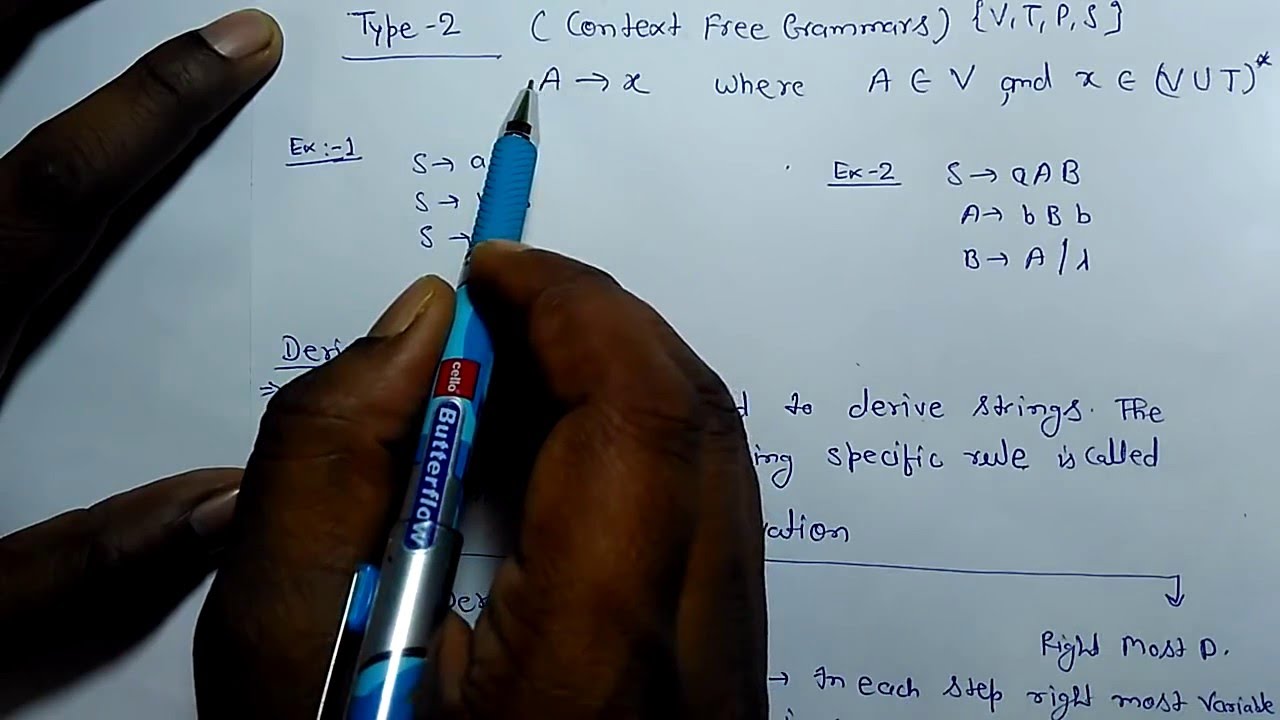 Type-2 (Context Free Grammars) {V,T,P,S}
A → x where A ∈ V and x ∈ (V U T)*
Ex:-1
S → a
S →
S →
Ex-2 S → aAB
A → bBb
B → A/λ
⇒ to derive strings. The
specific rule is called
Right Most D.
→ In each step right most variable
cello
Butterflow